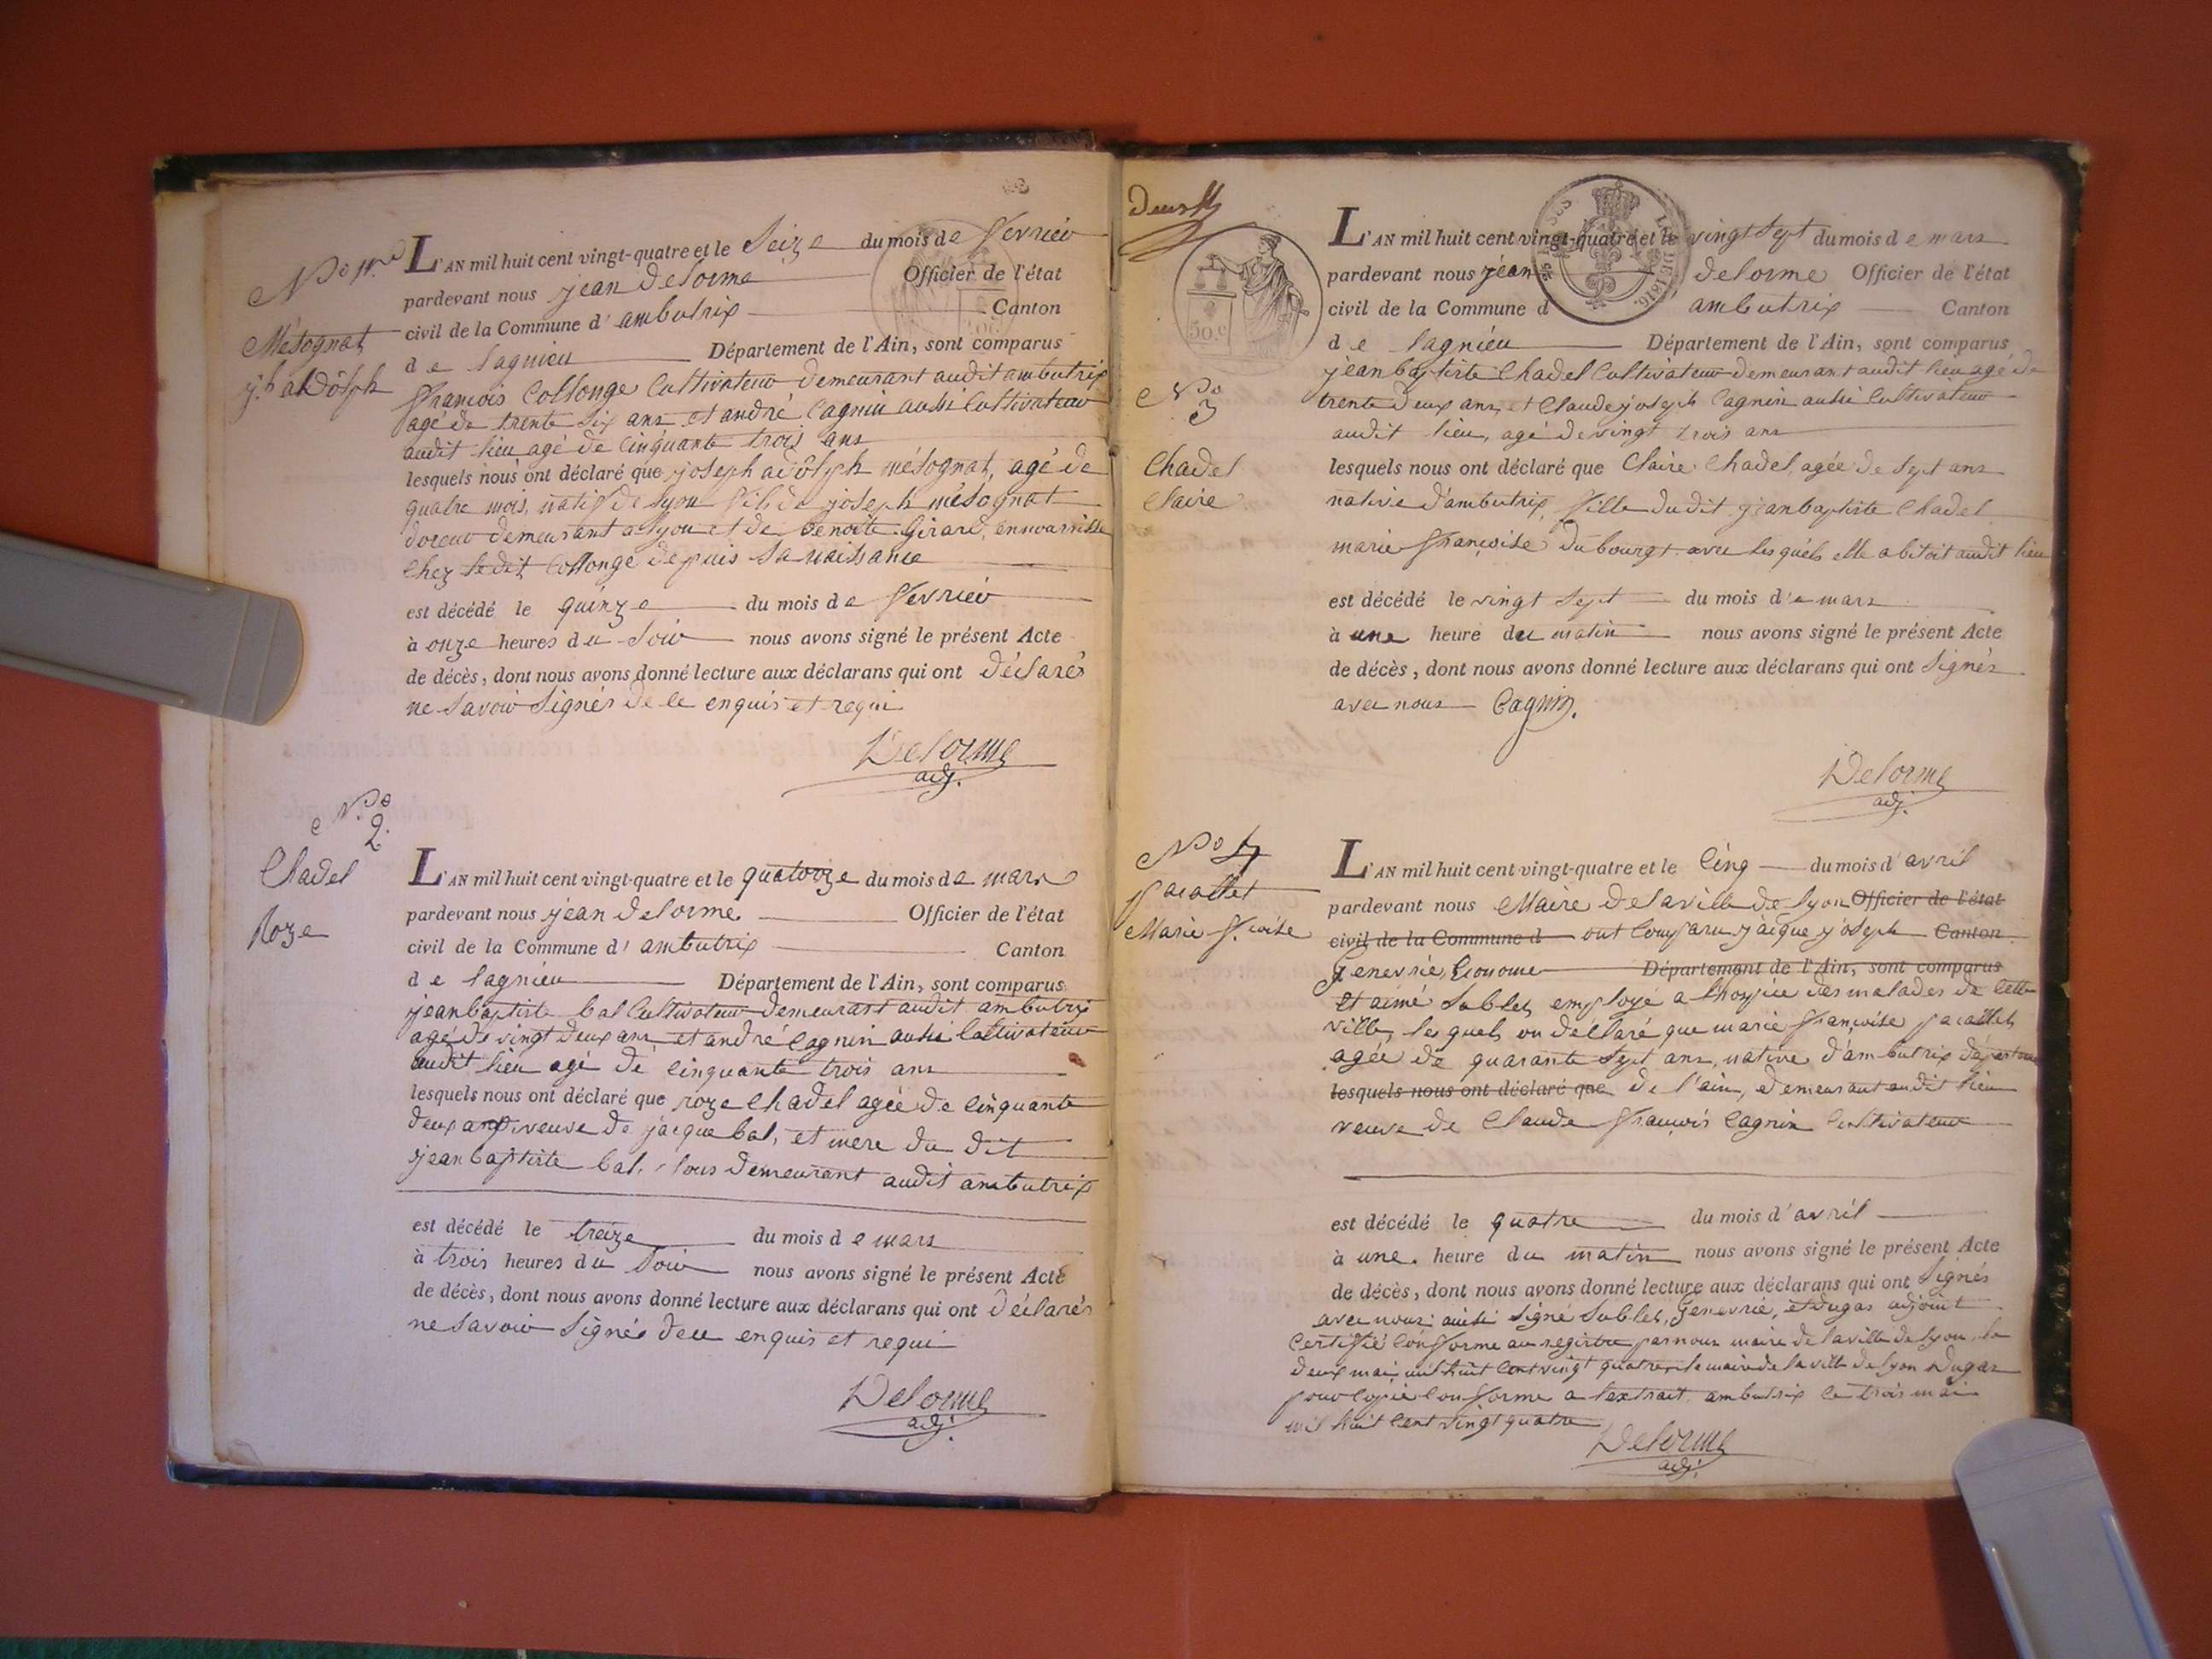 N.o 1.er
Mésognat
j.h adôlph
L'AN mil huit cent vingt-quatre et le Seize du mois de fevrier
pardevant nous jean Delorme Officier de l'état
civil de la Commune d' ambutrix Canton
de lagnieu Département de l'Ain, sont comparus
françois Collonge Cultivateur demeurant audit ambutrix
agé de trente six ans et andré Cagnin aussi Cultivateur
audit lieu agé de Cinquante trois ans
lesquels nous ont déclaré que joseph adôlph mésognat, agé de
quatre mois, natif de lyon fils de joseph mésognat
doreur demeurant a lyon et de Benoite Girard, en nourrisse
chez ledit Collonge depuis sa naissance
est décédé le quinze du mois de fevrier
à onze heures du Soir nous avons signé le présent Acte
de décès, dont nous avons donné lecture aux déclarans qui ont déclarés
ne Savoir Signés de ce enquis et requi
Delorme
adj.
N.o
2.
Chadel
Roze
L'AN mil huit cent vingt-quatre et le quatorze du mois de mars
pardevant nous jean delorme Officier de l'état
civil de la Commune d' ambutrix Canton
de lagnieu Département de l'Ain, sont comparus
jean baptiste bal Cultivateur demeurant audit ambutrix
agé de vingt deux ans et andré Cagnin aussi Cultivateur
audit lieu agé de Cinquante trois ans
lesquels nous ont déclaré que roze Chadel agée de Cinquante
deux ans veuve de jacque bal, et mere du dit
jean baptiste bal, tous demeurant audit ambutrix
est décédé le treize du mois de mars
à trois heures du Soir nous avons signé le présent Acte
de décès, dont nous avons donné lecture aux déclarans qui ont déclarés
ne Savoir Signés de ce enquis et requi
Delorme
adj.
50.c
LOI DE 1816.
N.o
3
Chadel
Claire
L'AN mil huit cent vingt-quatre et le vingt Sept du mois de mars
pardevant nous jean delorme Officier de l'état
civil de la Commune d ambutrix Canton
de lagnieu Département de l'Ain, sont comparus
jean baptiste Chadel Cultivateur demeurant audit lieu agé de
trente deux ans, et Claude joseph Cagnin aussi Cultivateur
audit lieu, agé de vingt trois ans
lesquels nous ont déclaré que Claire Chadel, agée de Sept ans
native d'ambutrix, fille dudit jean baptiste Chadel
marie françoise dubourg, avec lesquels elle abitoit audit lieu
est décédé le vingt Sept du mois de mars
à une heure du matin nous avons signé le présent Acte
de décès, dont nous avons donné lecture aux déclarans qui ont Signés
avec nous Cagnin.
Delorme
adj.
N.o 4
pacallet
Marie f.coise
L'AN mil huit cent vingt-quatre et le Cinq du mois d'avril
pardevant nous Maire de la ville de lyon Officier de l'état
civil de la Commune d ont Comparu jacque joseph Canton
Genevrié, Econome Département de l'Ain, sont comparus
et aimé Sublet, employé a l'hospice des malades de Cette
ville, lesquels on déclaré que marie françoise pacallet
agée de quarante Sept ans, native d'ambutrix département
lesquels nous ont déclaré que de l'ain, demeurant audit lieu
veuve de Claude françois Cagnin Cultivateur
est décédé le quatre du mois d'avril
à une heure du matin nous avons signé le présent Acte
de décès, dont nous avons donné lecture aux déclarans qui ont Signés
avec nous; ainsi Signé Sublet, Genevrié, et Dugas adjoint
Certifié Conforme au registre par nous maire de la ville de lyon, le
deux mai mil huit Cent vingt quatre, le maire de la ville de lyon Dugas
pour Copie Conforme a l'extrait ambutrix le trois mai
mil huit Cent vingt quatre
Delorme
adj.